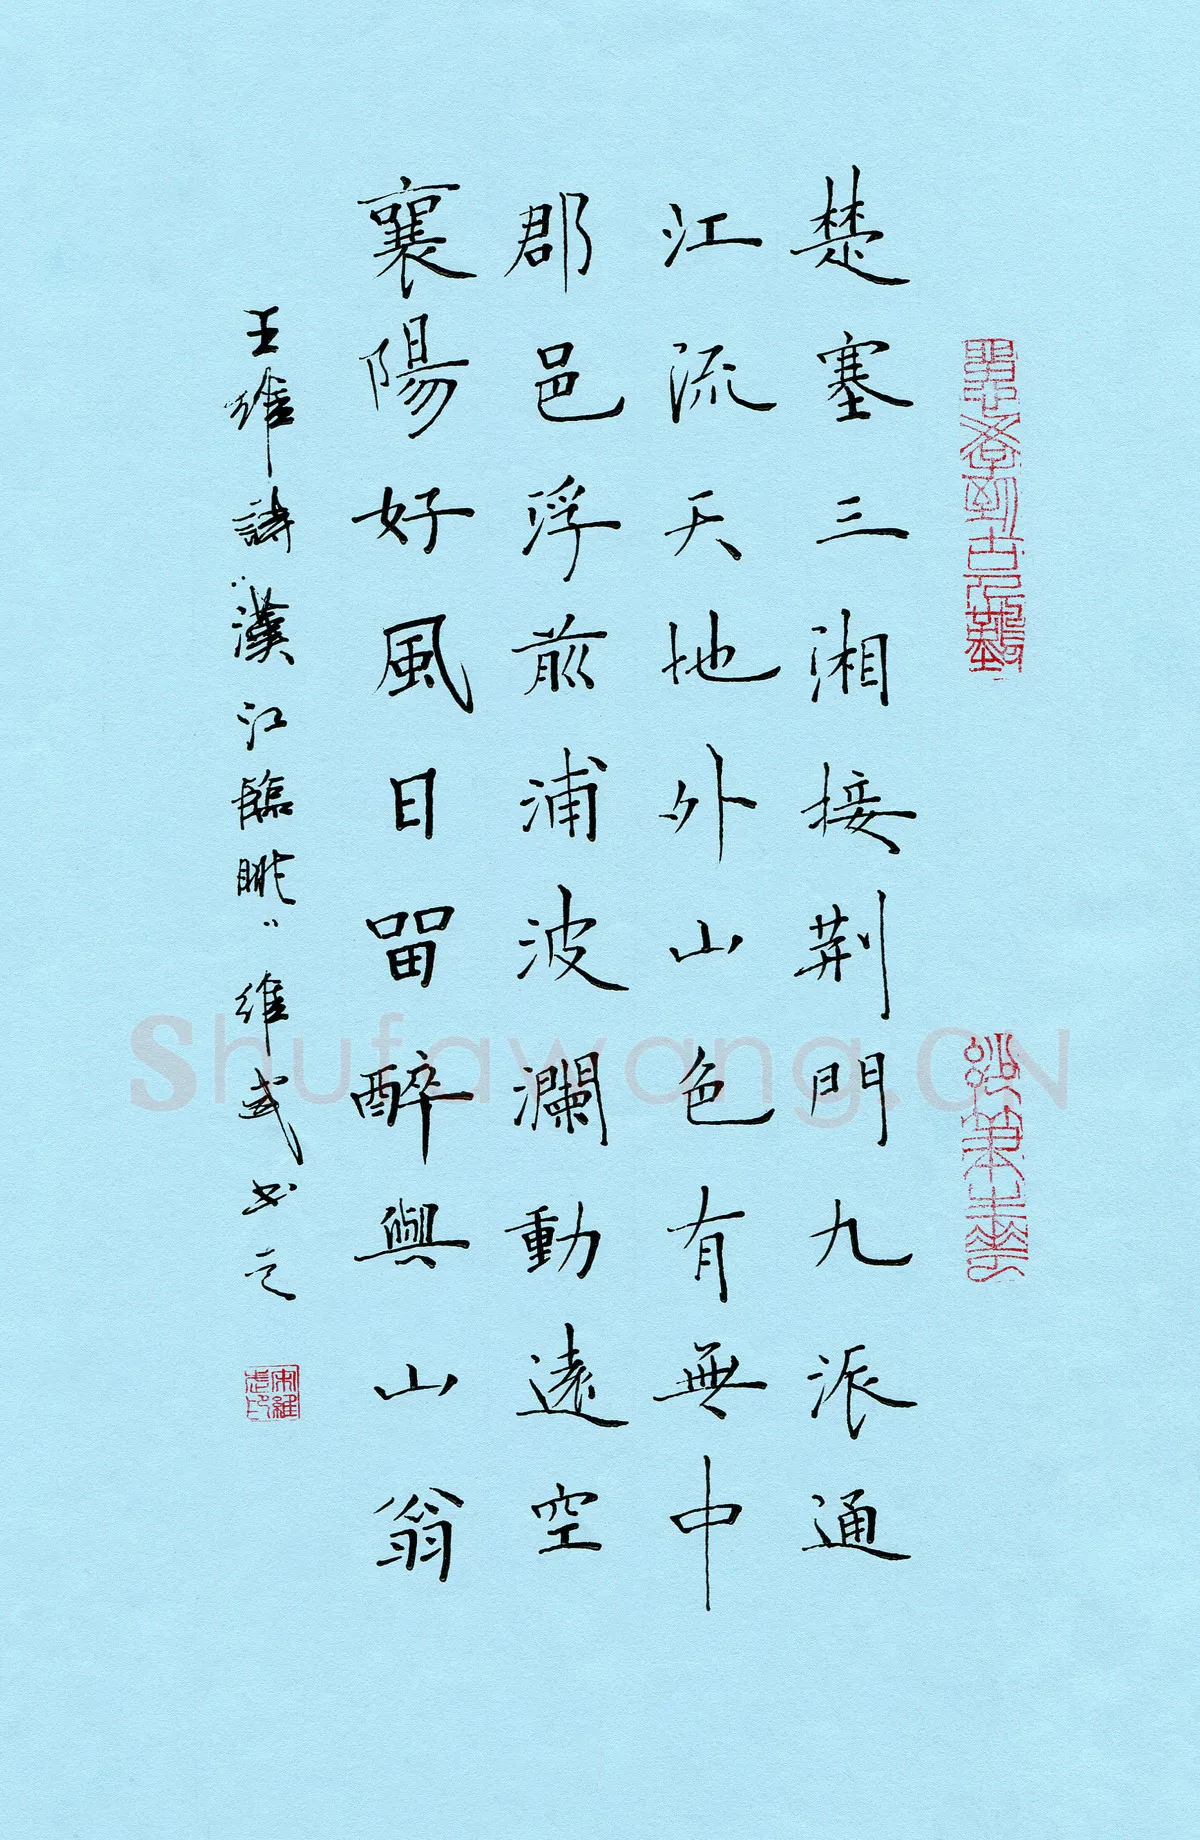 楚塞三湘接荆門九派通
江流天地外山色有無中
郡邑浮前浦波瀾動遠空
襄陽好風日畱醉與山翁
王維詩"漢江臨眺"維武书之
宋維武印
Shufawang.CN